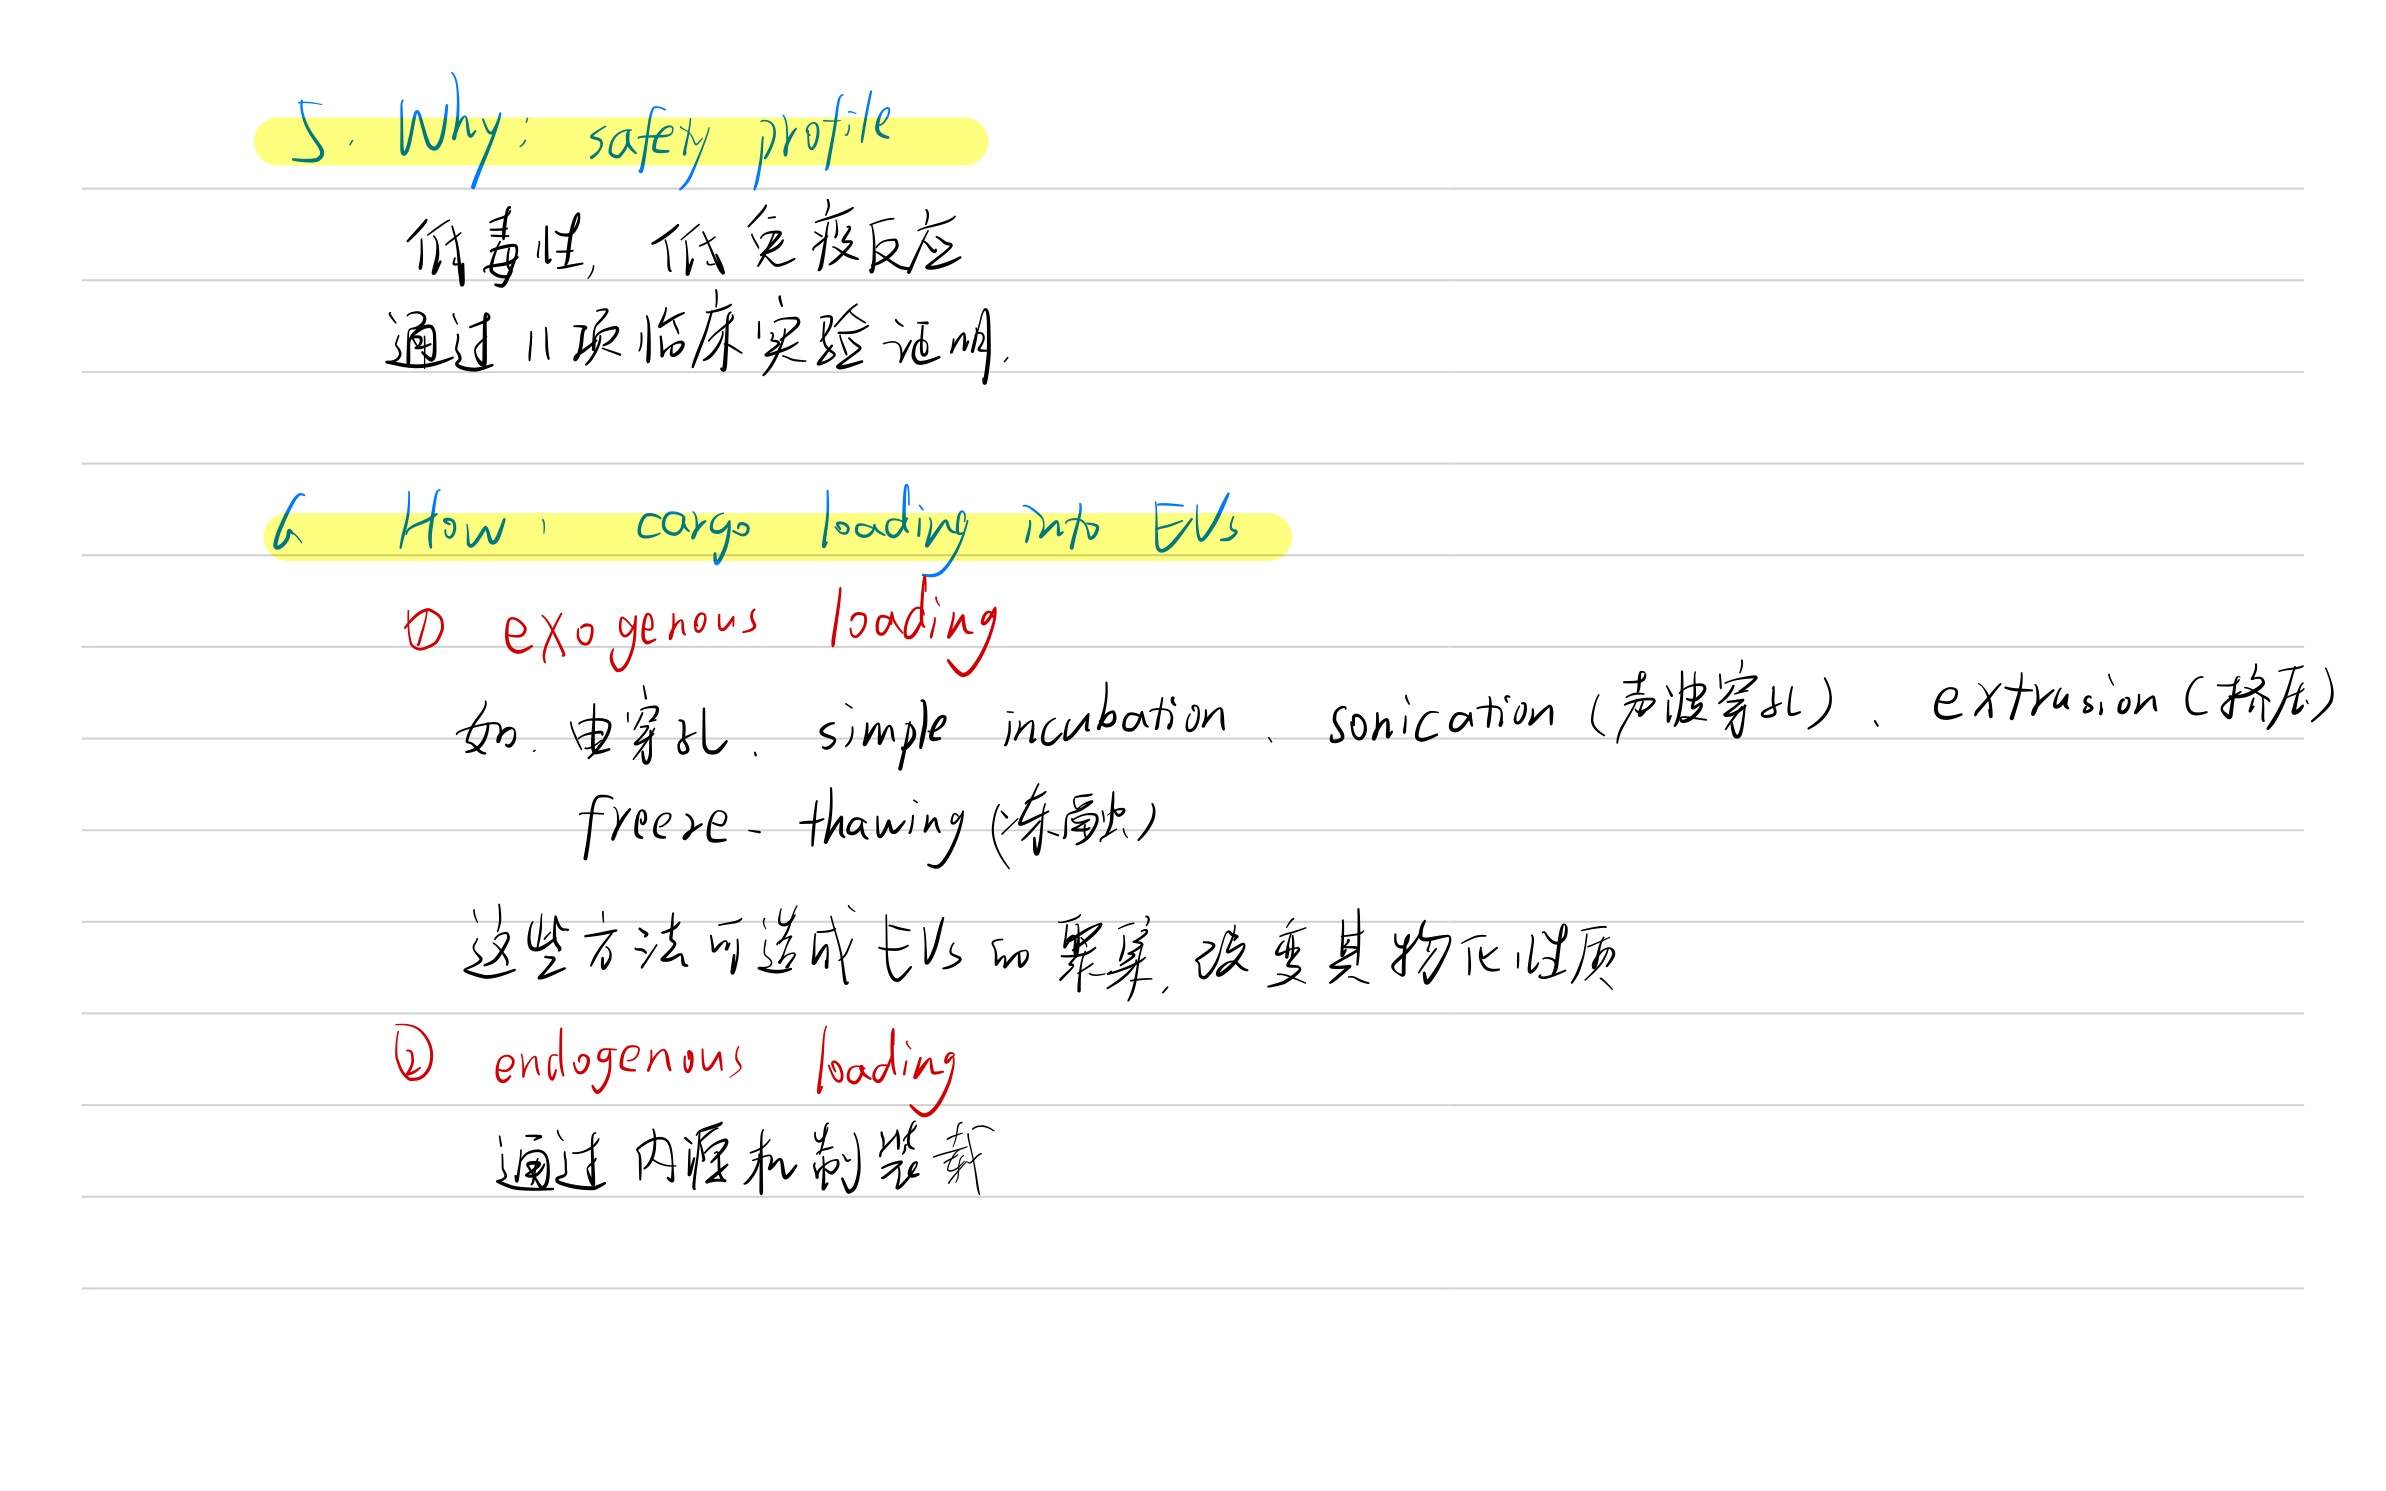 5. Why: safety profile
低毒性, 低免疫反应
通过11项临床实验证明.
6. How: cargo loading into EVs
① exogenous loading
如. 电穿孔、simple incubation、sonication (声波穿孔)、extrusion (挤压)
freeze-thawing (冻融)
这些方法可造成EVs的聚集, 改变其物化性质
② endogenous loading
通过内源机制装载